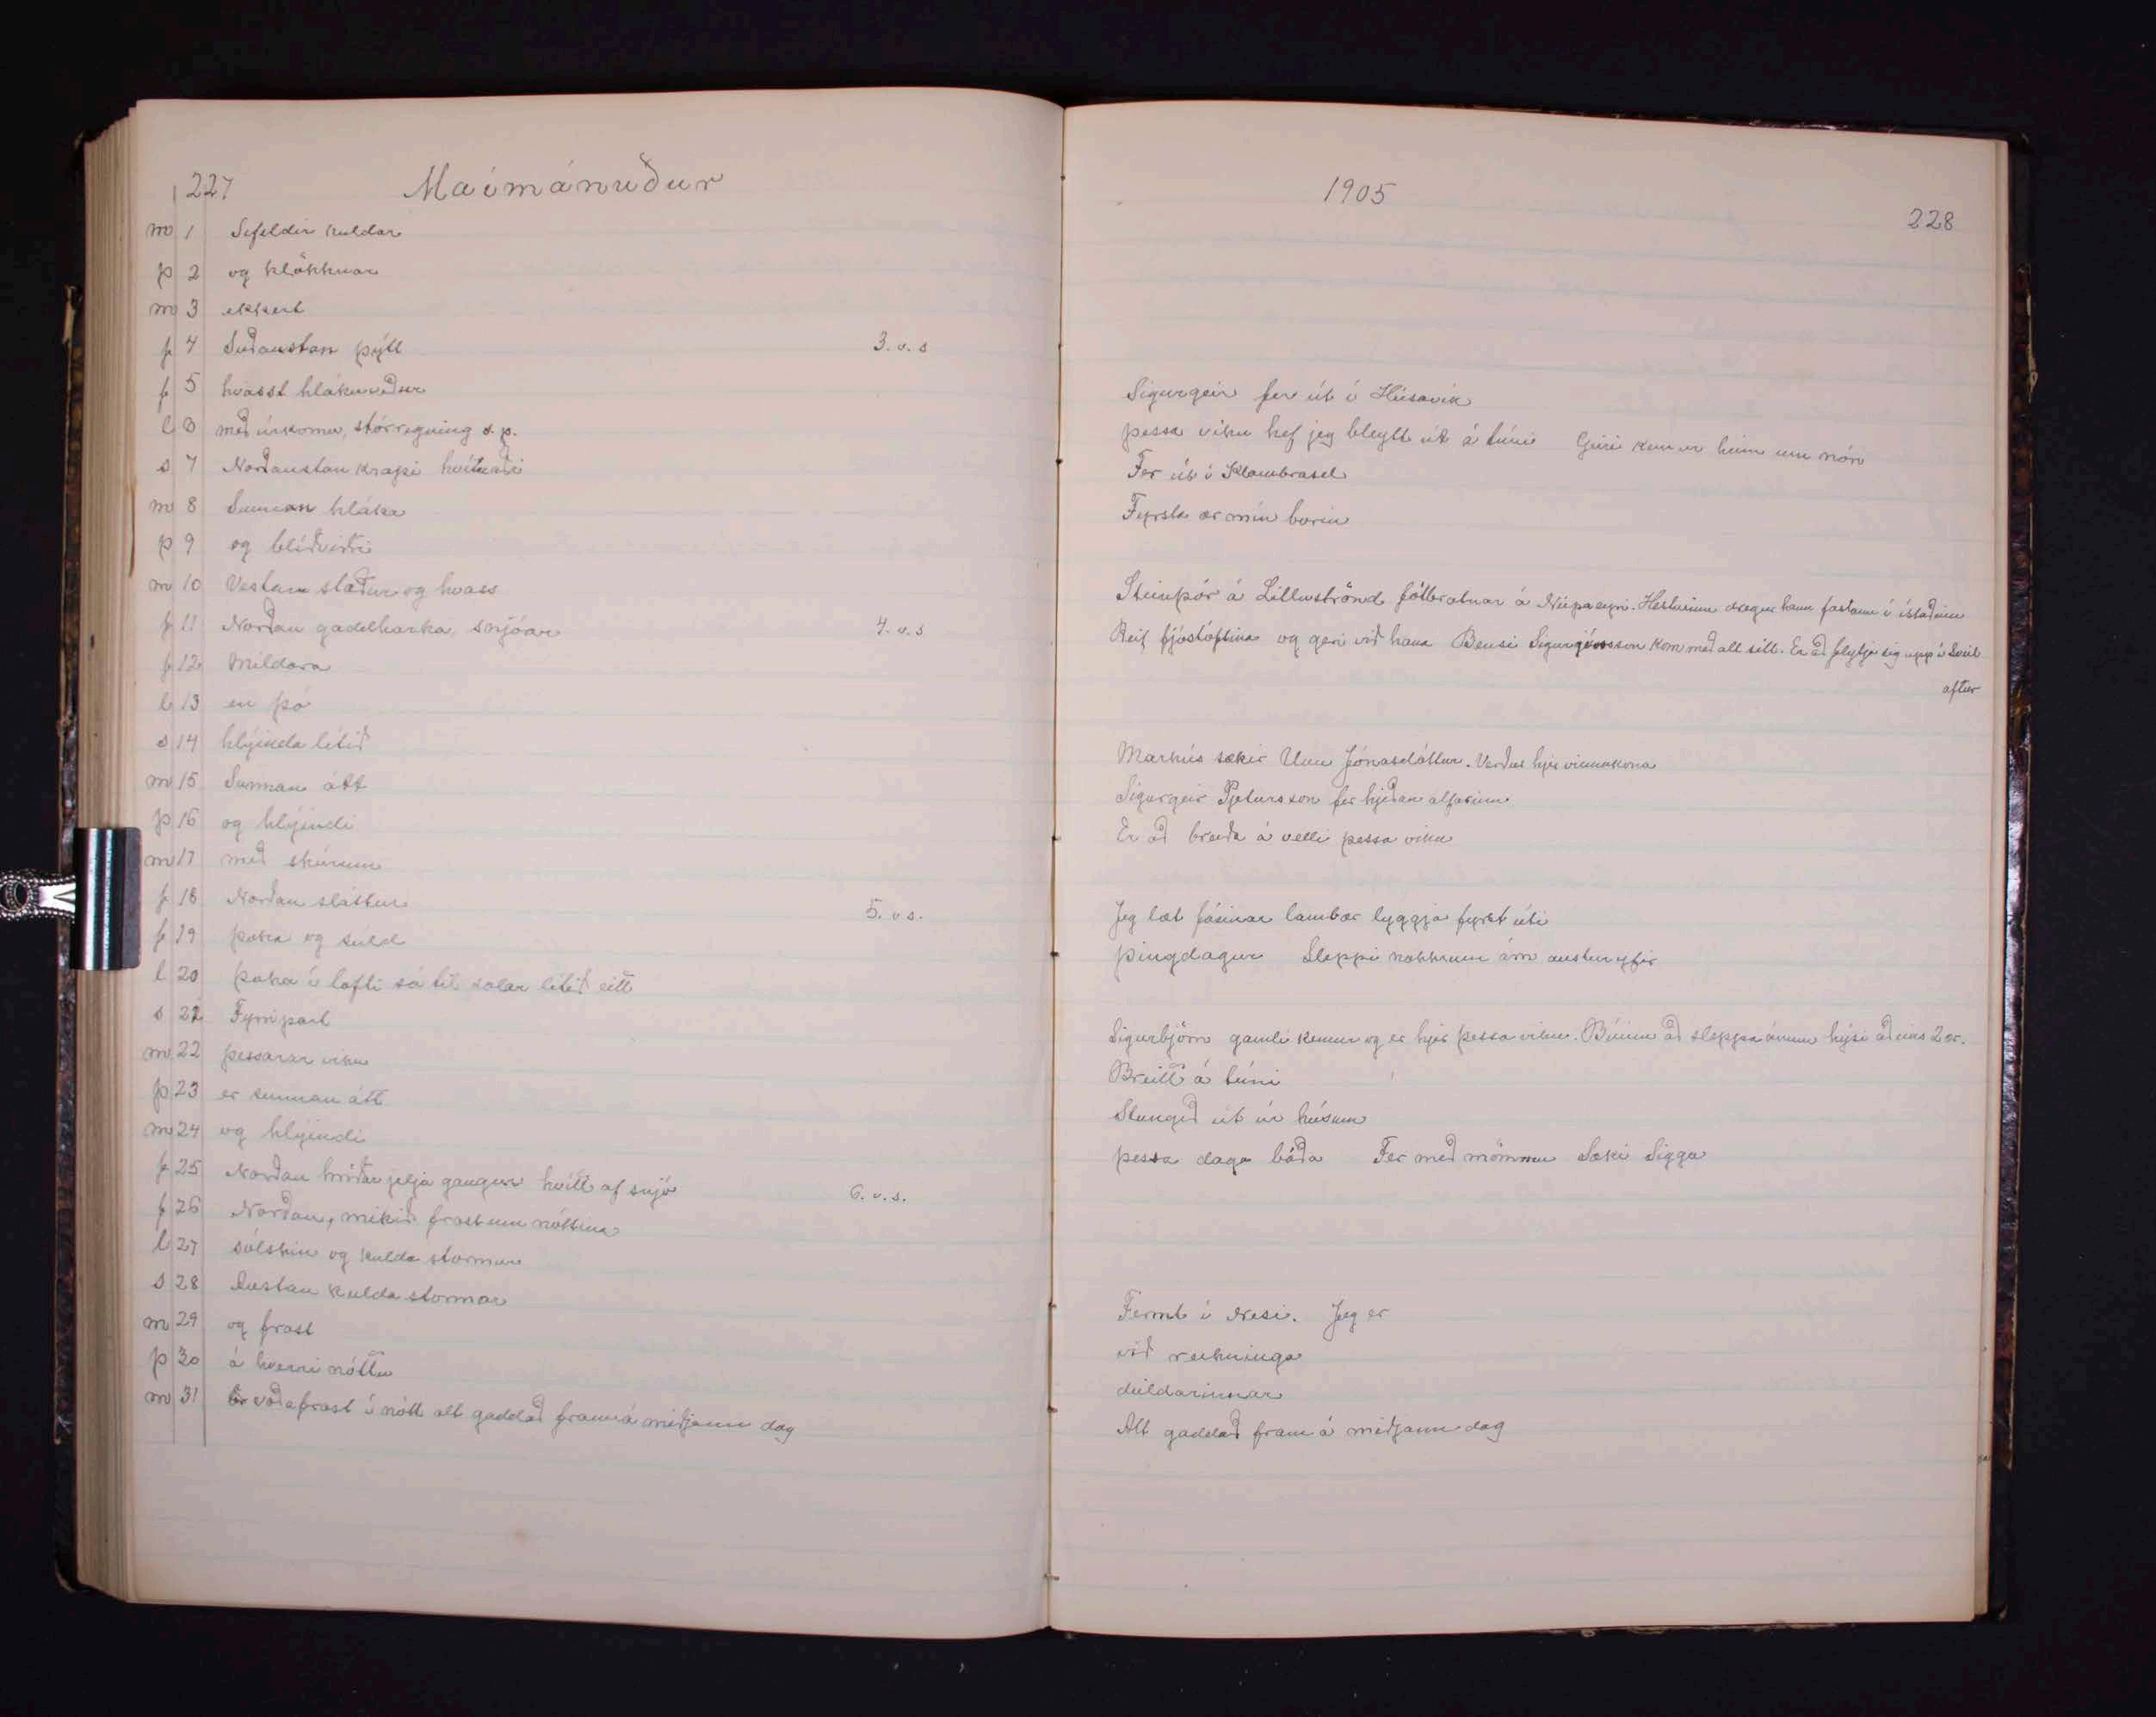 227 Maímánuður
m 1 Sífeldir kuldar
þ 2 og klökknar
m 3 ekkert
f 4 Suðaustan þýtt 3. v. s
f 5 hvasst hlákuveður
l 6 með úrkomu, stórregning s. p.
s 7 Norðaustan krapi hvítnaði
m 8 Sunnan hláka
þ 9 og blíðviðri
m 10 Vestan stæður og hvass
f 11 Norðan gadelharka, snjóar 4. v. s
f 12 Mildara
l 13 en þó
s 14 hlýinda lítið
m 15 Sunnan átt
þ 16 og hlýindi
m 17 með skúrum
f 18 Norðan sláttur 5. v s.
f 19 þoka og súld
l 20 þoka í lofti sá til sólar lítið eitt
s 21 Fyrripart
m 22 þessarar viku
þ 23 er sunnan átt
m 24 og hlýindi
f 25 Norðan hríðar jelja gangur hvítt af snjó 6. v. s.
f 26 Norðan, mikið frost um nóttina
l 27 sólskin og kulda stormur
s 28 Austan kulda stormar
m 29 og frost
þ 30 á hverri nóttu
m 31 voðafrost í nótt alt gaddað fram á miðjann dag
1905
228
Sigurgeir fer út í Húsavík
þessa viku hef jeg bleytt út á túni Geiri kemur heim um nón
Fer út í Klambrasel
Fyrsta ær mín borin
Steinþór á Litluströnd fótbrotnar á Núpaeyri. Hesturinn dregur hann fastann í ístaðinu
Reif fjóstóftina og geri við hana Bensi Sigurjónsson kom með alt sitt. Er að flytja sig upp í Sveit
aftur
Markús sækir Unu Jónasdóttur. Verður hjer vinnukona
Sigurgeir Pjetursson fer hjeðan alfarinn
Er að breiða á velli þessa viku
Jeg læt fáeinar lambær lyggja fyrst úti
þingdagur Sleppi nokkrum ám austur yfir
Sigurbjörn gamli kemur og er hjer þessa viku. Búinn að sleppa ánum hýsi aðeins 2 ær.
Breitt á túni
Stungið út úr húsum
þessa daga báða Fer með mömmu Sæki Sigga
Fermt í Nesi. Jeg er
við reikninga
deildarinnar
Alt gaddað fram á miðjann dag